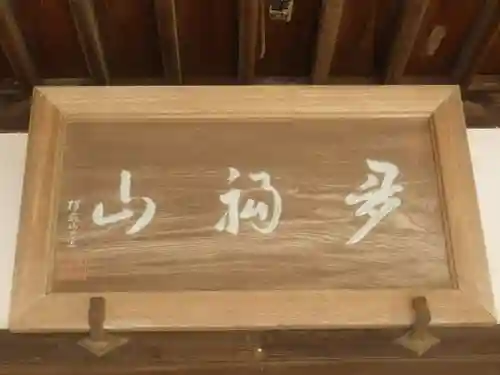 多福山